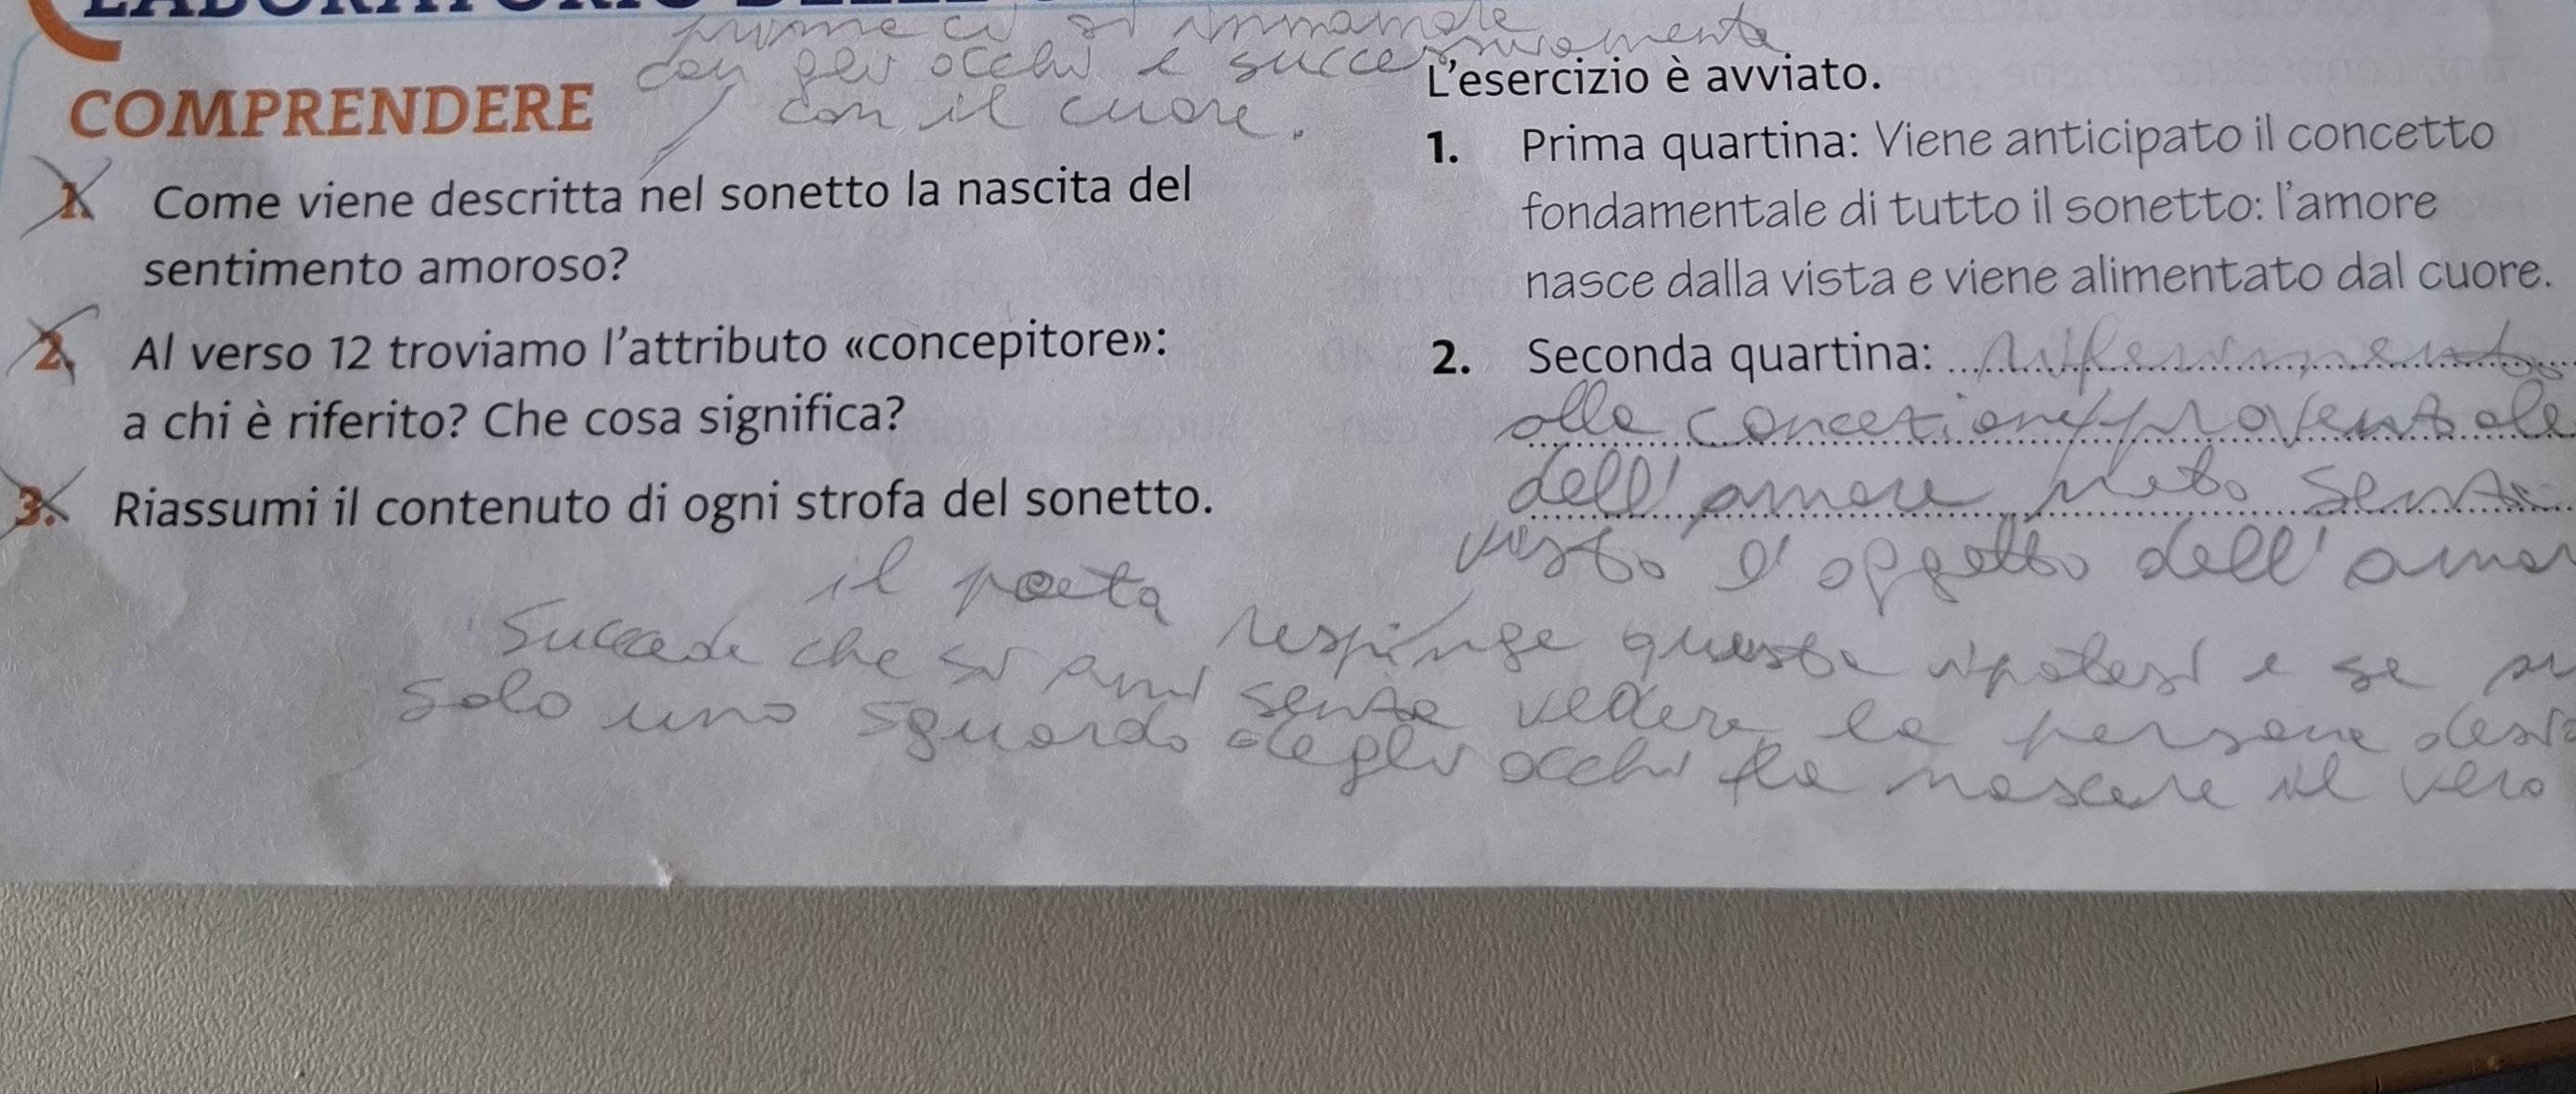 prima ci si innamora
con gli occhi e successivamente
con il cuore.
COMPRENDERE
1. Come viene descritta nel sonetto la nascita del
sentimento amoroso?
2. Al verso 12 troviamo l'attributo «concepitore»:
a chi è riferito? Che cosa significa?
3. Riassumi il contenuto di ogni strofa del sonetto.
L'esercizio è avviato.
1. Prima quartina: Viene anticipato il concetto
fondamentale di tutto il sonetto: l'amore
nasce dalla vista e viene alimentato dal cuore.
2. Seconda quartina: riferimento
alla concezione provenzale
dell'amore nato senza
visto l'oggetto dell'amor
il poeta respinge questa ipotesi e se
Succede che si ami senza vedere la persona
solo uno sguardo degli occhi fa nascere il vero